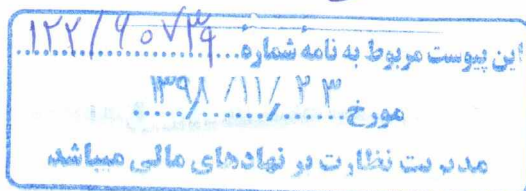 این پیوست مربوط به نامه شماره ۱۲۲/۶۰۷۳۴
مورخ ۱۳۹۸/۱۱/۲۳
مدیریت نظارت بر نهادهای مالی میباشد